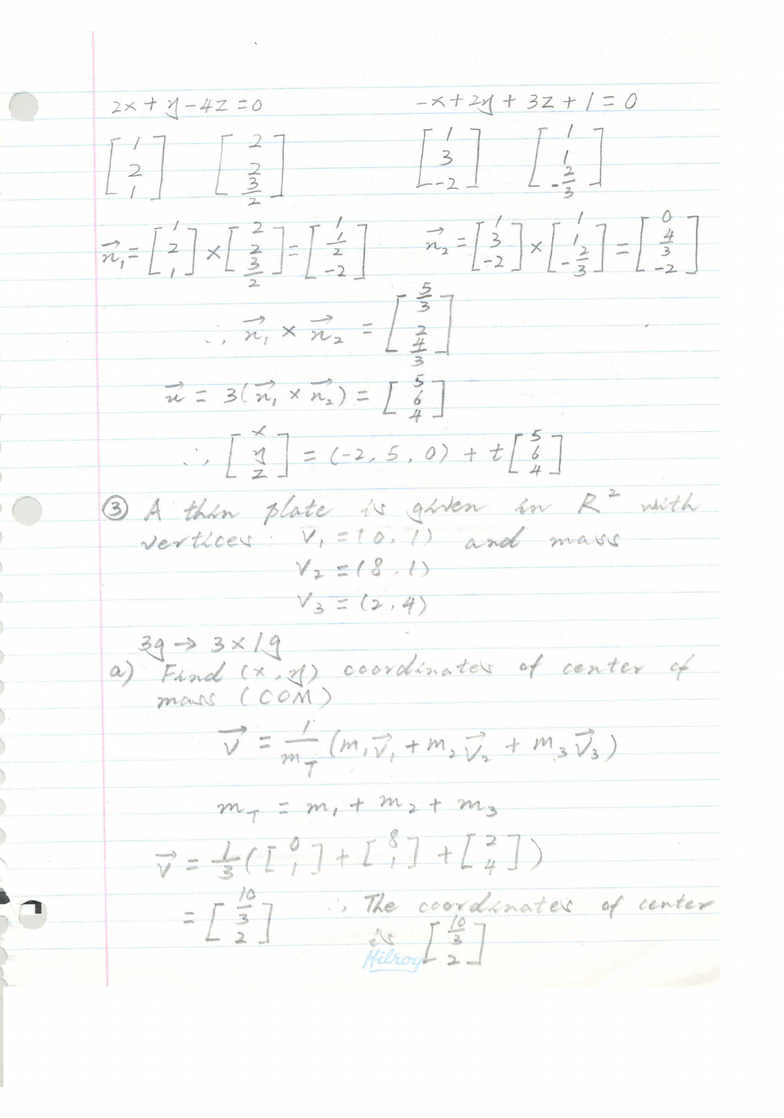 2x + y - 4z = 0    -x + 2y + 3z + 1 = 0
[1 2 1] [2 2 3/2]    [1 3 -2] [1 1 -2/3]
n⃗₁ = [1 2 1] × [2 2 3/2] = [1 1/2 -2]    n⃗₂ = [1 3 -2] × [1 1 -2/3] = [0 4/3 -2]
∴ n⃗₁ × n⃗₂ = [5/3 2 4/3]
u⃗ = 3(n⃗₁ × n⃗₂) = [5 6 4]
∴ [x y z] = (-2, 5, 0) + t[5 6 4]
③ A thin plate is given in R² with
vertices V₁ = (0, 1) and mass
V₂ = (8, 1)
V₃ = (2, 4)
3g → 3×1g
a) Find (x, y) coordinates of center of
mass (COM)
v⃗ = 1/m_T (m₁v⃗₁ + m₂v⃗₂ + m₃v⃗₃)
m_T = m₁ + m₂ + m₃
v⃗ = 1/3([0 1] + [8 1] + [2 4])
= [10/3 2]    ∴ The coordinates of center
is [10/3 2]
Hilroy